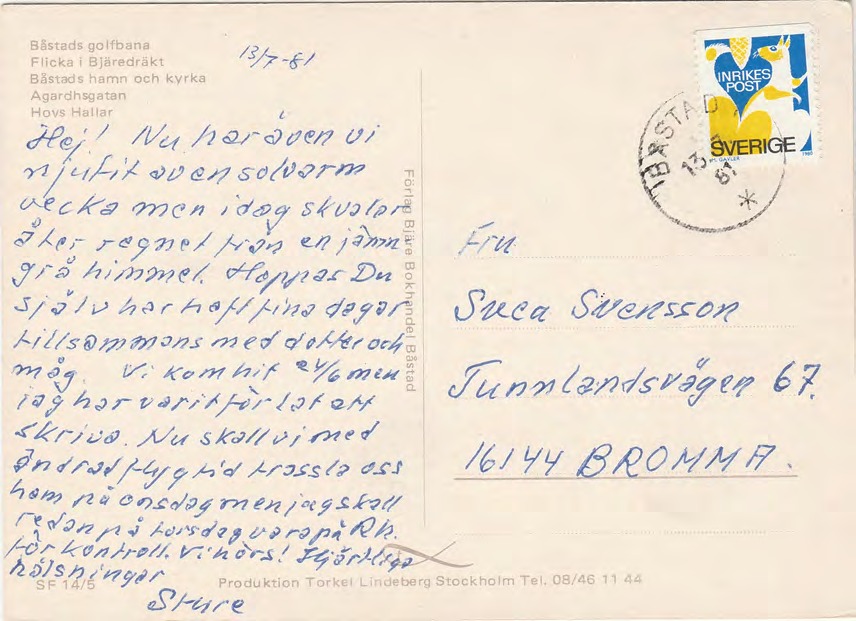 Båstads golfbana
Flicka i Bjäredräkt
Båstads hamn och kyrka
Agardhsgatan
Hovs Hallar
13/7-81
Hej! Nu har även vi
njutit av en solvarm
vecka men idag skvalar
åter regnet från en jämn-
grå himmel. Hoppas Du
själv har haft fina dagar
tillsammans med dotter och
måg. Vi kom hit 24/6 men
jag har varit för lat att
skriva. Nu skall vi med
ändrad flygtid trassla oss
hem på onsdag men jag skall
redan på torsdag vara på Rh.
för kontroll. Vi hörs! Hjärtliga
hälsningar
Sture
SF 14/5
Produktion Torkel Lindeberg Stockholm Tel. 08/46 11 44
Förlag Bjäre Bokhandel Båstad
INRIKES
POST
SVERIGE
1980
BÅSTAD
13 7
81
Fru
Svea Svensson
Tunnlandsvägen 67.
16144 BROMMA.